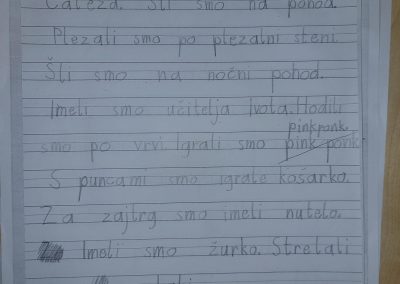 Čateža. Šli smo na pohod.
Plezali smo po plezalni steni.
Šli smo na nočni pohod.
Imeli smo učitelja Ivota. Hodili
pinkponk.
smo po vrvi. Igrali smo pink ponk.
S puncami smo igrale košarko.
Za zajtrg smo imeli nutelo.
Imeli smo žurko. Streljali